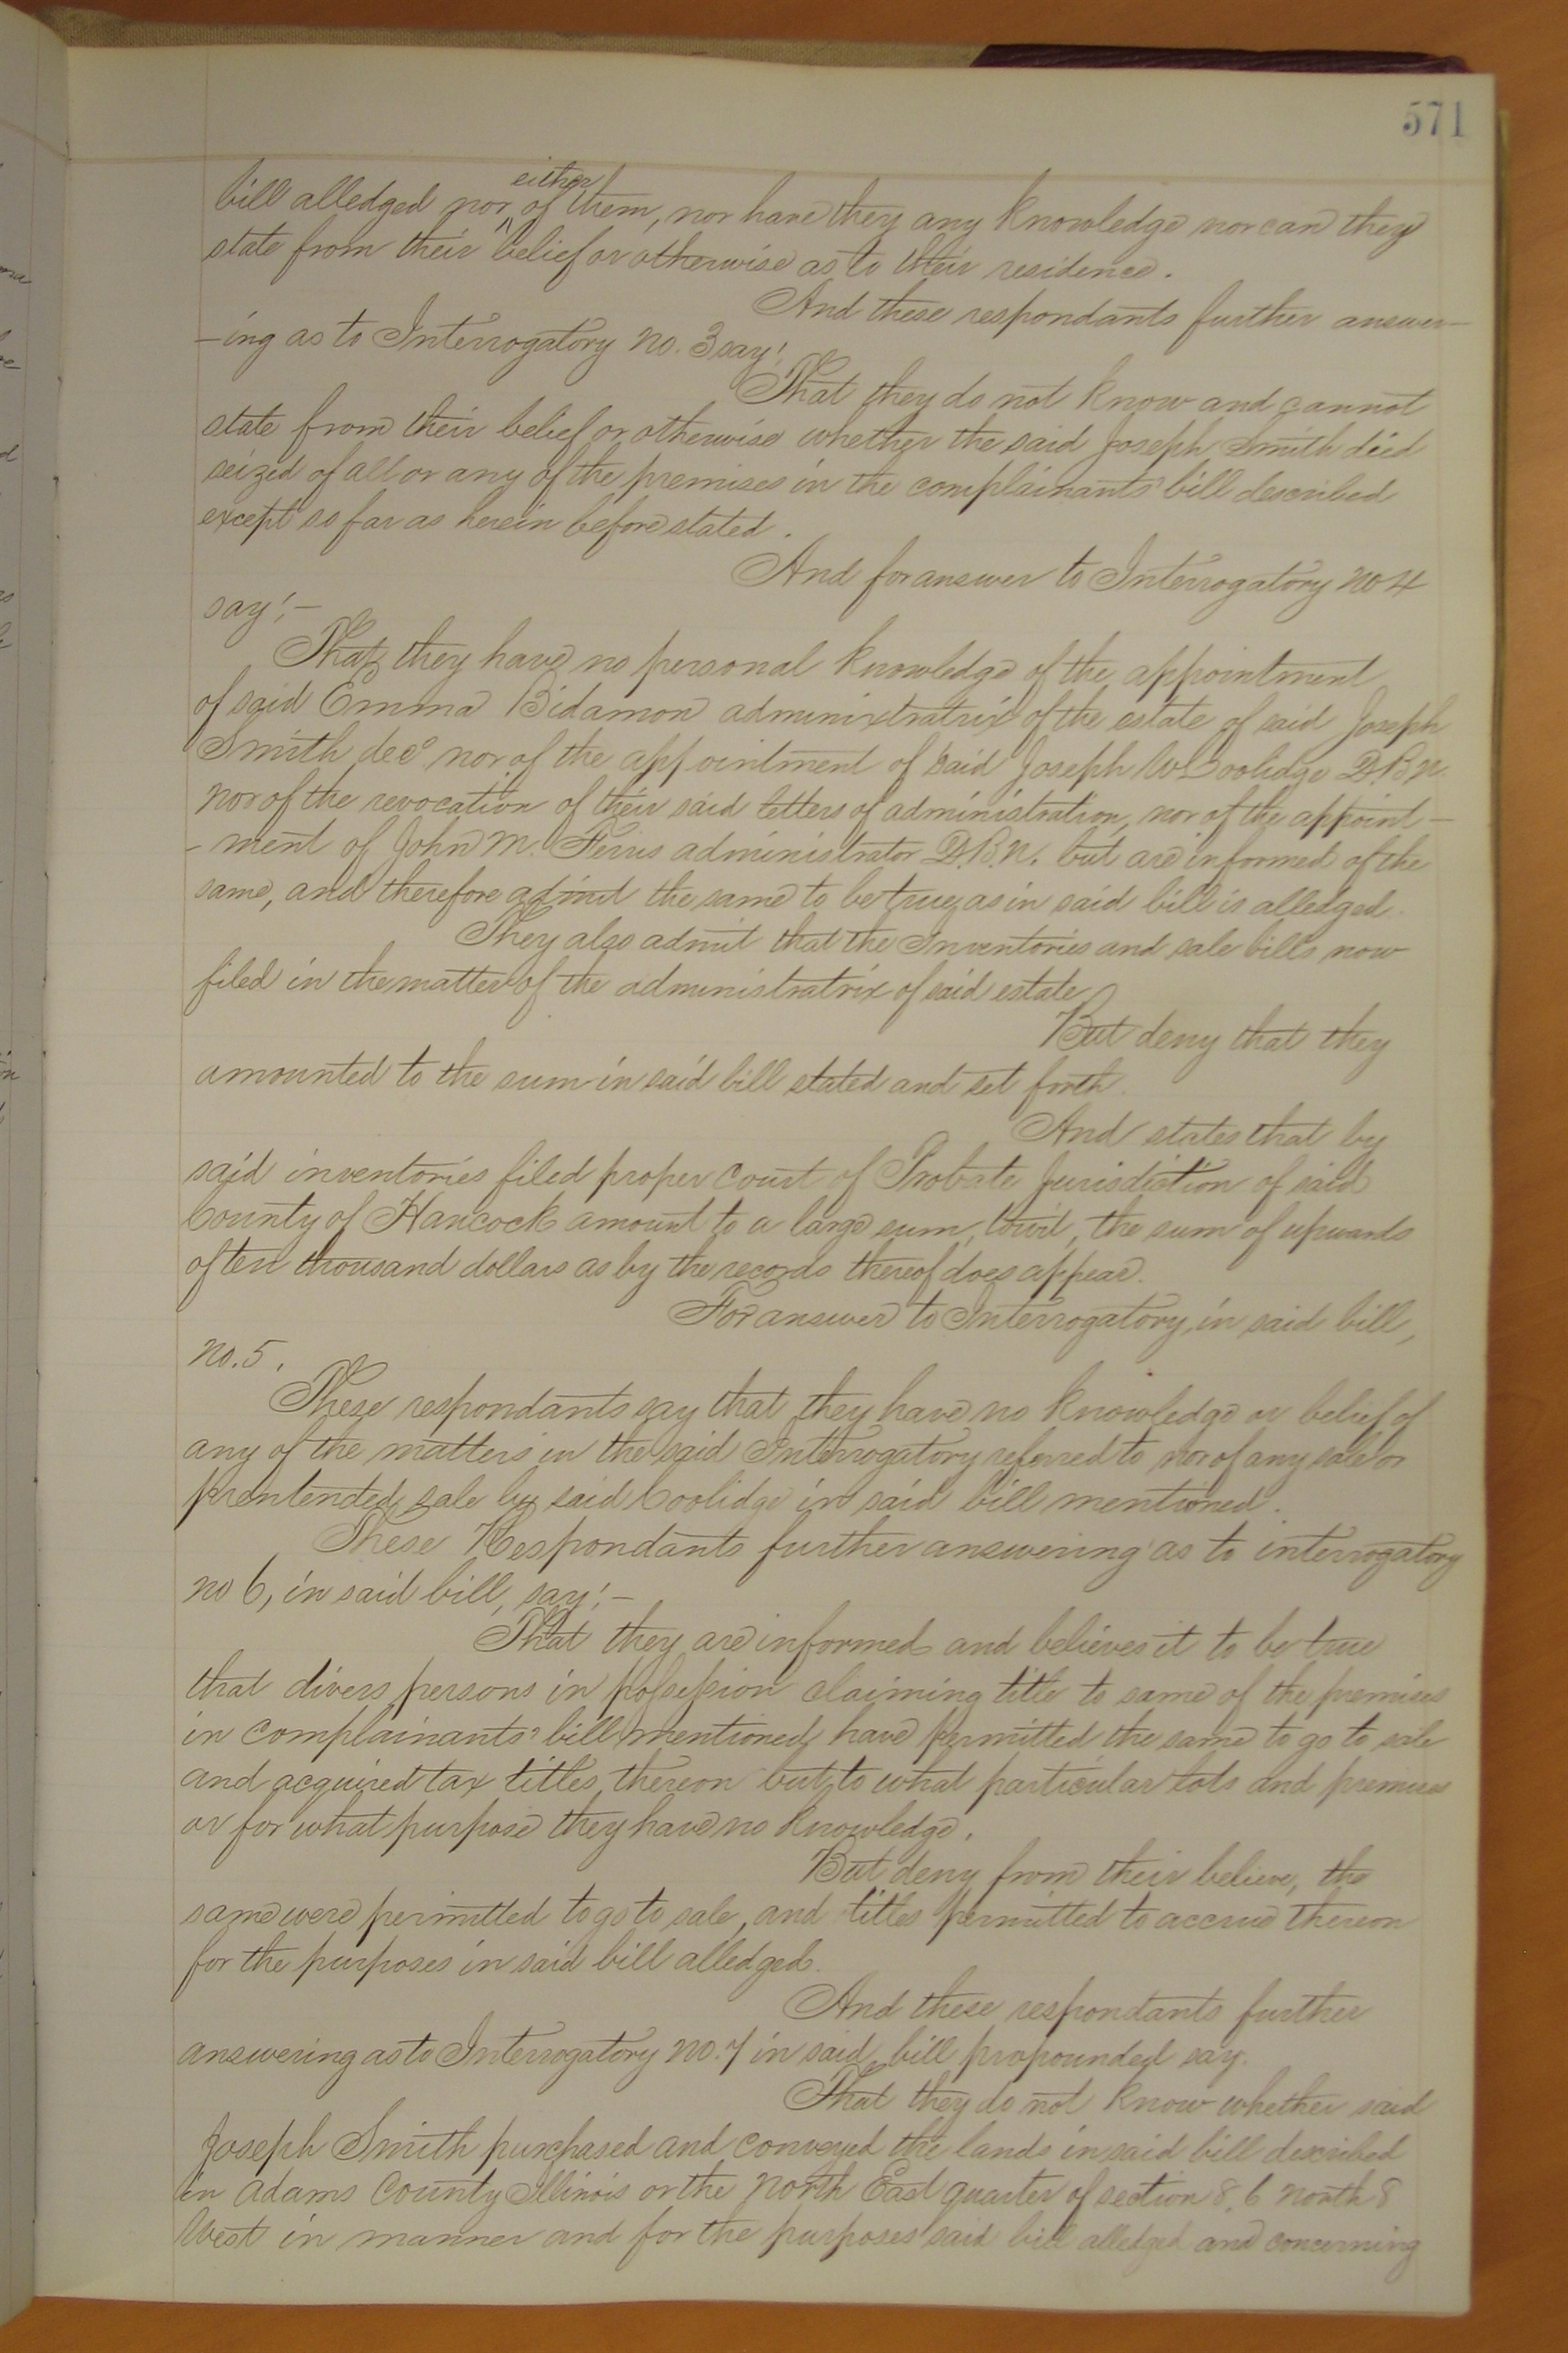 571
bill alledged nor either of them, nor have they any knowledge nor can they
state from their belief or otherwise as to their residence.
And these respondants further answer-
-ing as to Interrogatory No. 3 say!
That they do not know and cannot
state from their belief or otherwise whether the said Joseph Smith died
seized of all or any of the premises in the complainants' bill described
except so far as herein before stated.
And for answer to Interrogatory No 4
say!-
That they have no personal knowledge of the appointment
of said Emma Bidamon administratrix of the estate of said Joseph
Smith decd nor of the appointment of said Joseph W Coolidge D.B.N.
nor of the revocation of their said letters of administration, nor of the appoint-
-ment of John M. Ferris administrator D.B.N. but are informed of the
same, and therefore admit the same to be true, as in said bill is alledged.
They also admit that the Inventories and sale bills now
filed in the matter of the administratrix of said estate
But deny that they
amounted to the sum in said bill stated and set forth.
And states that by
said inventories filed proper Court of Probate Jurisdiction of said
County of Hancock amount to a large sum, towit, the sum of upwards
of ten thousand dollars as by the records thereof does appear.
For answer to Interrogatory, in said bill,
No. 5.
These respondants say that they have no knowledge or belief of
any of the matters in the said Interrogatory referred to nor of any sale or
prentended sale by said Coolidge in said bill mentioned.
These Respondants further answering as to interrogatory
No 6, in said bill, say!-
That they are informed and believes it to be true
that divers persons in possession claiming title to same of the premises
in complainants' bill mentioned, have permitted the same to go to sale
and acquired tax titles, thereon but to what particular lots and premises
or for what purpose they have no knowledge.
But deny from their believe, the
same were permitted to go to sale, and titles permitted to accrue thereon
for the purposes in said bill alledged.
And these respondants further
answering as to Interrogatory No. 7 in said bill propounded say.
That they do not know whether said
Joseph Smith purchased and conveyed the lands in said bill described
in Adams County Illinois or the North East quarter of section 8, 6 North 8
West in manner and for the purposes said bill alledged and concerning